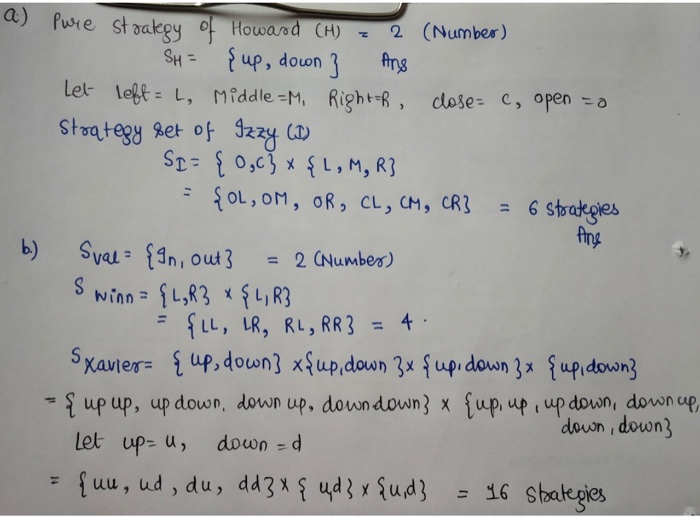 a) Pure strategy of Howard (H) = 2 (Number)
SH = {up, down} Ans
Let left = L, Middle = M, Right = R, close = c, open = o
Strategy set of Izzy (I)
SI = {O,C} × {L, M, R}
= {OL, OM, OR, CL, CM, CR} = 6 strategies
Ans
b) Sval = {In, out} = 2 (Number)
S winn = {L,R} × {L,R}
= {LL, LR, RL, RR} = 4.
Sxavier = {up, down} × {up, down} × {up, down} × {up, down}
= {up up, up down, down up, down down} × {up, up, up down, down up,
down, down}
Let up = u, down = d
= {uu, ud, du, dd} × {u,d} × {u,d} = 16 strategies